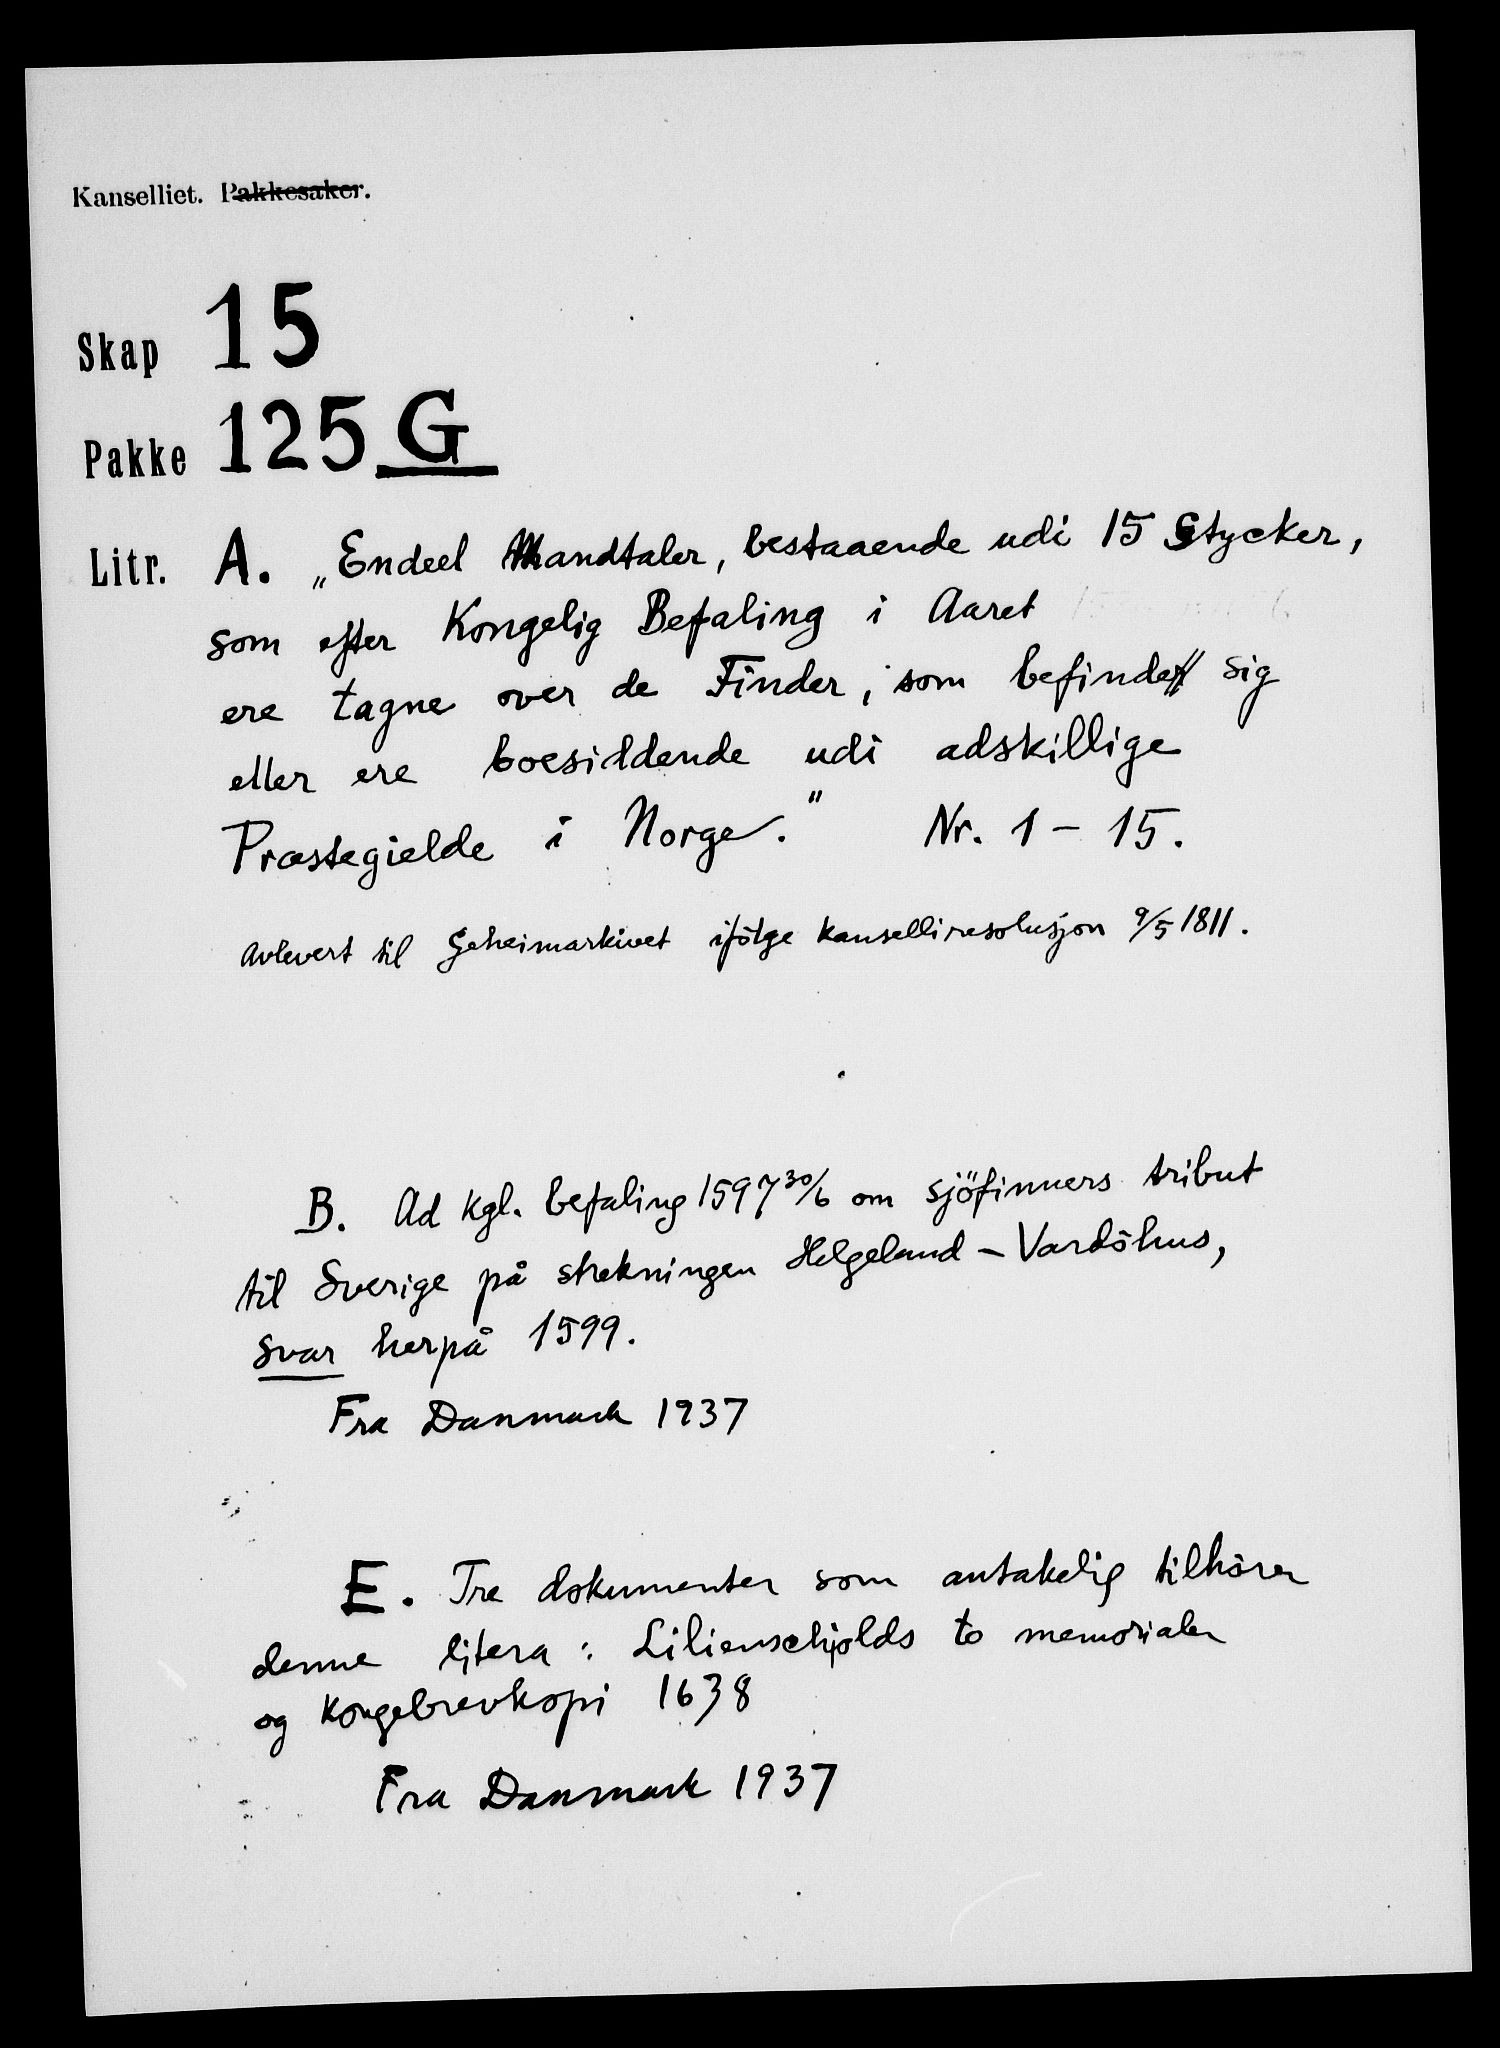 Kanselliet. Pakkesaker.
Skap 15
Pakke 125 G
Litr. A. „Endeel Mandtaler, bestaaende udi 15 Stycker,
som efter Kongelig Befaling i Aaret
ere tagne over de Finder, som befinder sig
eller ere boesiddende udi adskillige
Præstegielde i Norge." Nr. 1 – 15.
Avlevert til Geheimarkivet ifölge kanselliresolusjon 9/5 1811.
B. Ad kgl. befaling 1597 30/6 om sjöfinners tribut
til Sverige på strekningen Helgeland – Vardöhus,
svar herpå 1599.
Fra Danmark 1937
E. Tre dokumenter som antakelig tilhörer
denne litera: Lilienschjolds to memorialer
og Kongebrevkopi 1638
Fra Danmark 1937